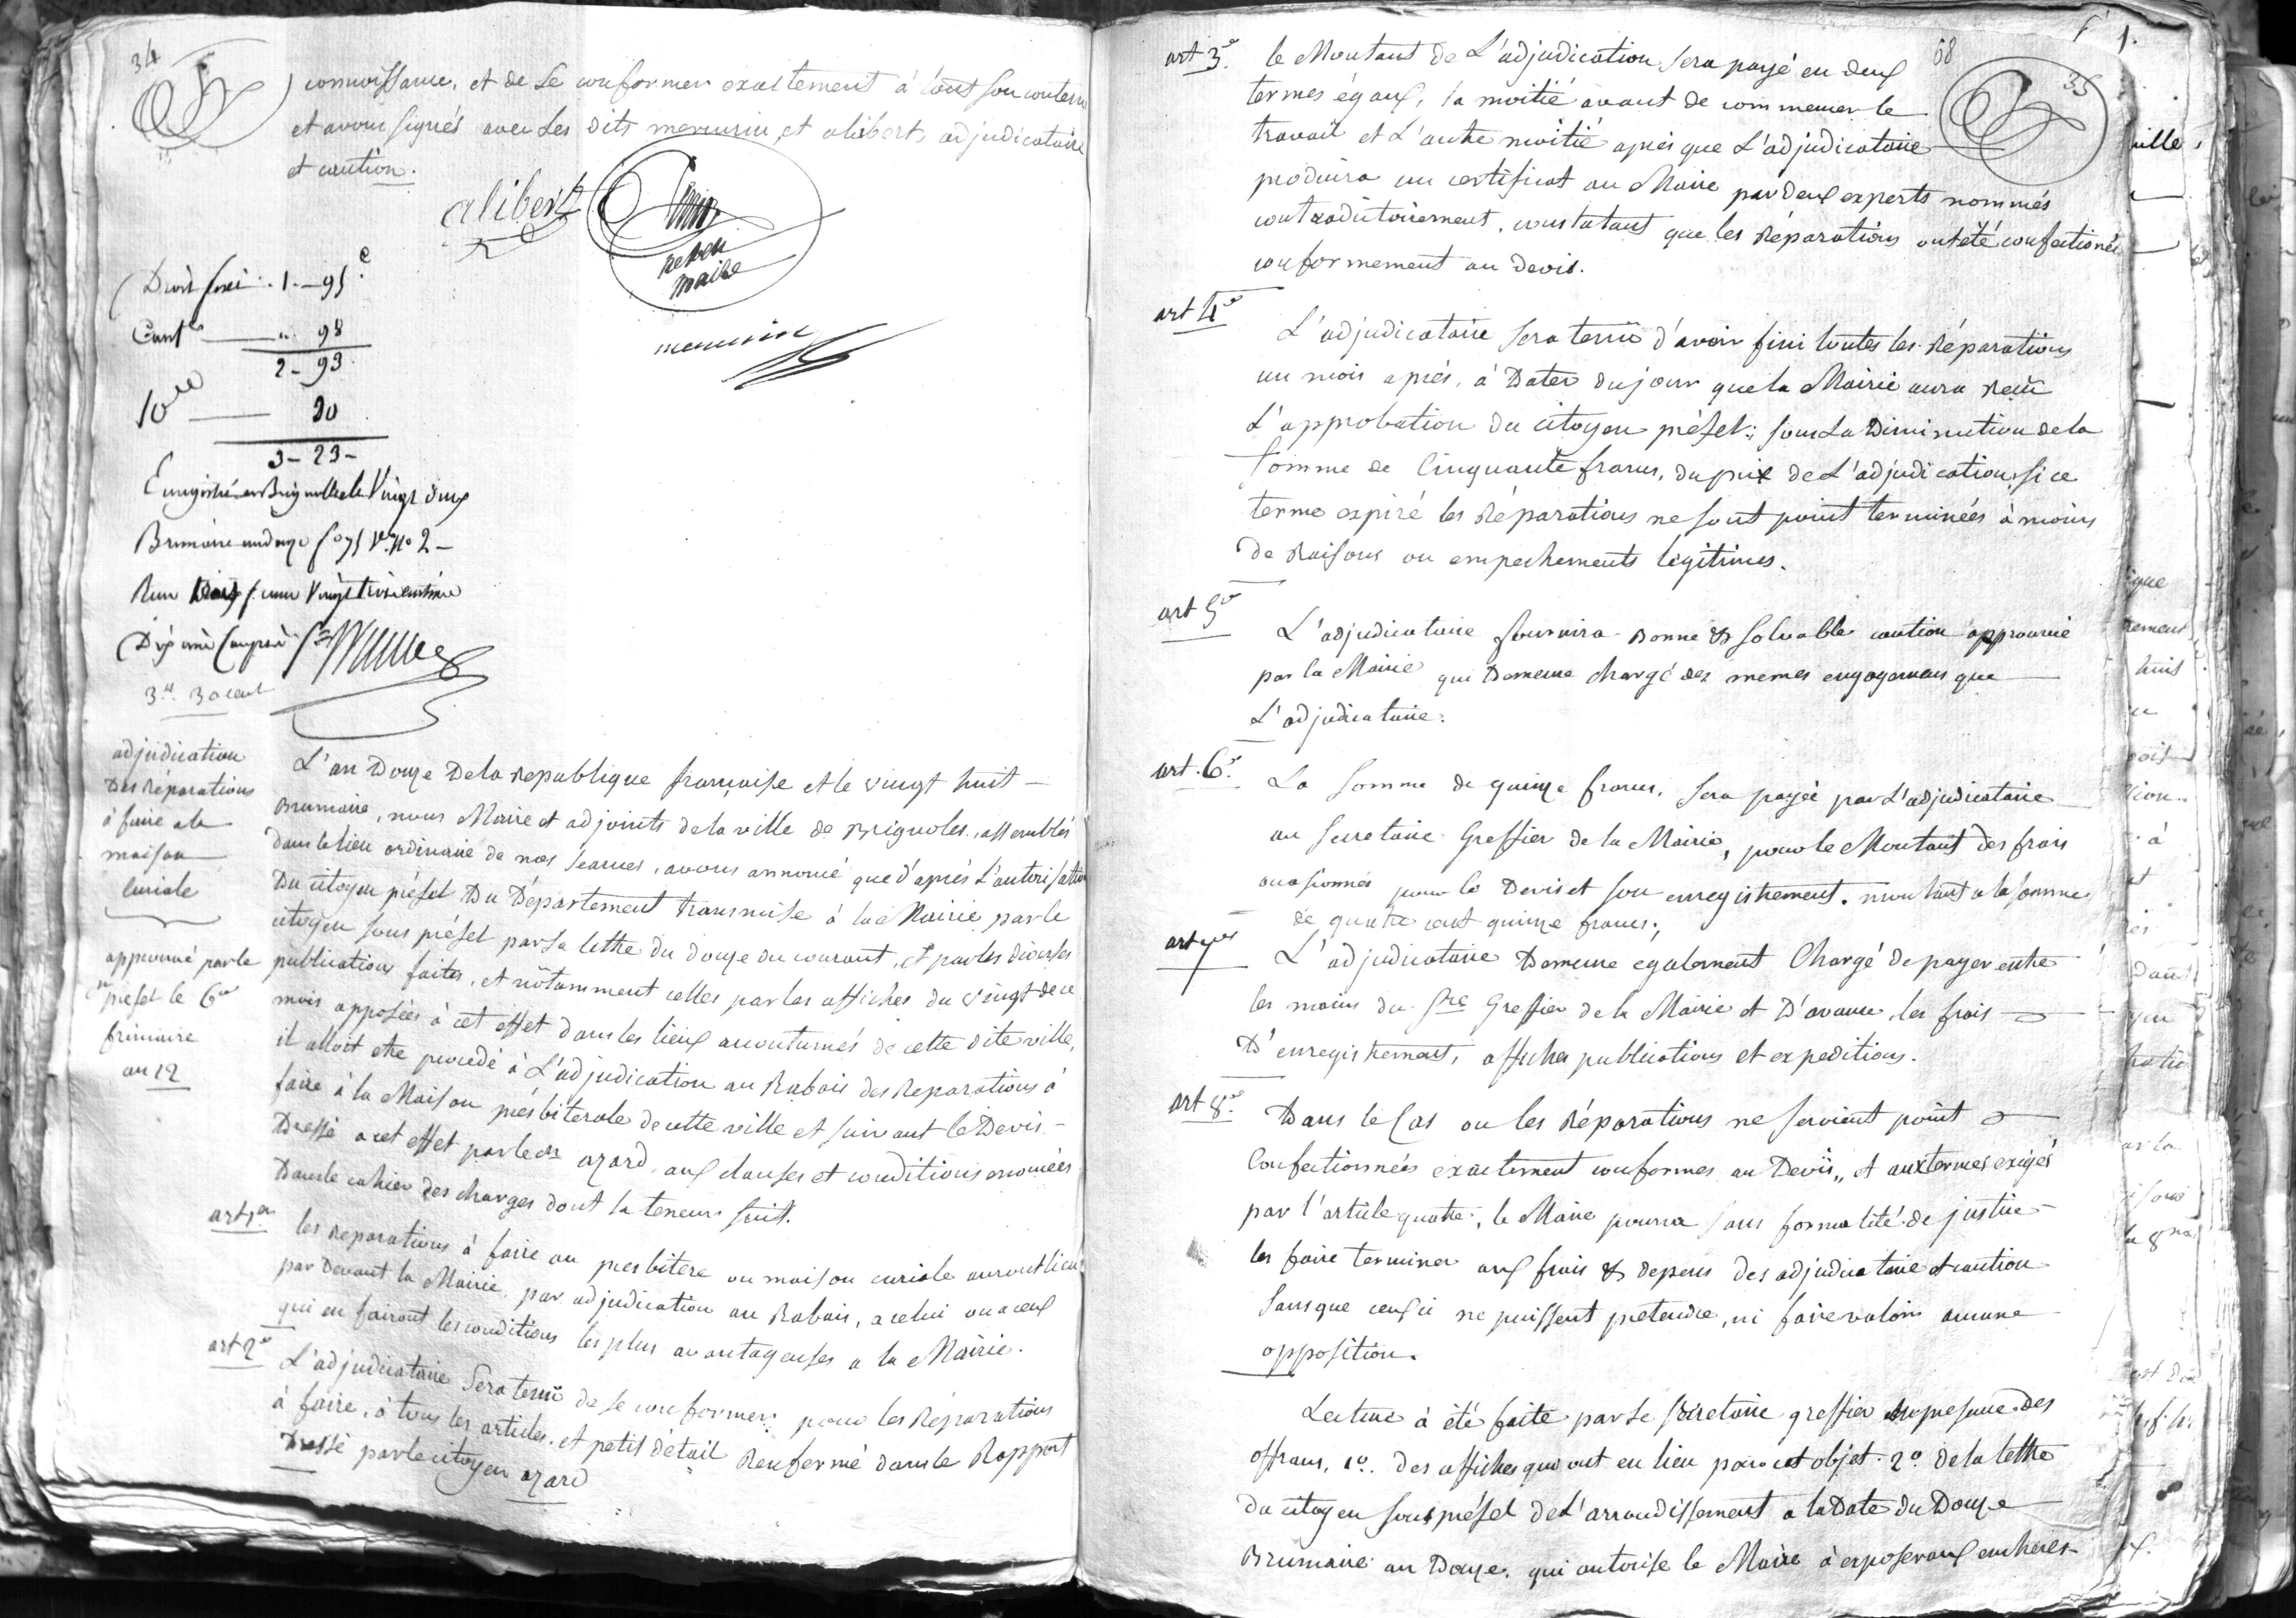 34
connoissance, et de se conformer exactement à tout son contenu
et avons signés avec les dits mercurin et alibert, adjudicataire
et caution.
alibert
maire
mercurin
Droit fixe 1.-95c
Caut 98
2-93
10me 30
3-23-
Enregistré à Brignolles le Vingt deux
Brumaire an douze fo 75 Vo No 2-
Reçu trois francs Vingt trois centimes
Dixième Compris
3.tt 30 cent
adjudication
Des Réparations
à faire a la
maison
Curiale
approuvé par le
préfet le 6me
frimaire
an 12
L'an Douze De la république française et le vingt huit
Brumaire, nous Maire et adjoints de la ville de Brignoles, assemblés
dans le lieu ordinaire de nos seances, avons annoncé que d'après L'autorisation
Du citoyen préfet Du Département transmise à la Mairie par le
citoyen sous préfet par sa lettre du douze du courant, et par les diverses
publications faites, et nôtamment celles par les affiches du vingt de ce
mois apposées à cet effet dans les lieux accoutumés de cette dite ville,
il alloit etre procedé à L'adjudication au Rabais des Reparations à
faire à la Maison présbiterale de cette ville et suivant le Devis
Dressé a cet effet par le cn azard, aux clauses et conditions enoncées
Dans le cahier des charges dont la teneur suit.
art 1er les reparations à faire au presbitere ou maison curiale auront lieu
par Devant la Mairie, par adjudication au Rabais, a celui ou a ceux
qui en fairont les conditions les plus avantageuses a la Mairie.
art 2e L'adjudicataire Sera tenu de se conformer: pour les Réparations
à faire, à tous les articles, et petit détail Renfermé dans le Rapport
Dressé par le citoyen azard
68
35
art 3e le Montant de L'adjudication sera payé en deux
termes égaux, la moitié avant de commencer le
travail et L'autre moitié après que L'adjudicataire
produira un certificat au Maire par deux experts nommés
contradictoirement, constatant que les Réparations ont été confectionées
conformement au devis.
art 4e
L'adjudicataire sera tenu d'avoir fini toutes les Réparations
un mois après, à Dater du jour que la Mairie aura Reçu
L'approbation du citoyen préfet: sous La Diminution de la
somme de Cinquante francs, du prix de L'adjudication, si ce
terme expiré les Réparations ne sont point terminées à moins
de Raisons ou empechements légitimes.
art 5e
L'adjudicataire fournira Bonne & solvable caution approuvée
par la Mairie qui Demeure chargé des memes engagemens que
L'adjudicataire.
art. 6e. La somme de quinze francs, sera payée par L'adjudicataire
au Secretaire Greffier de la Mairie, pour le Montant des frais
occasionnés pour le Devis et son enregistrement. montant a la somme
de quatre cent quinze francs;
art 7e L'adjudicataire Demeure egalement Chargé de payer entre
les mains du Sre Greffier de la Mairie et D'avance, les frais
D'enregistrement, affiches publications et expeditions.
art 8e. Dans le Cas ou les Réparations ne seroient point
Confectionnées exactement conformes au Devis,, et aux termes exigés
par l'article quatre, le Maire pourra sans formalité de justice
les faire terminer aux frais & depens des adjudicataire et caution
sans que ceux ci ne puissent pretendre, ni faire valoir aucune
opposition.
Lecture à été faite par le secretaire greffier en presence des
offrans, 1o. des affiches qui ont eu lieu pour cet objet. 2o de la lettre
du citoyen sous préfet de L'arrondissement a la Date du Douze
Brumaire an Douze. qui autorise le Maire à exposer aux encheres